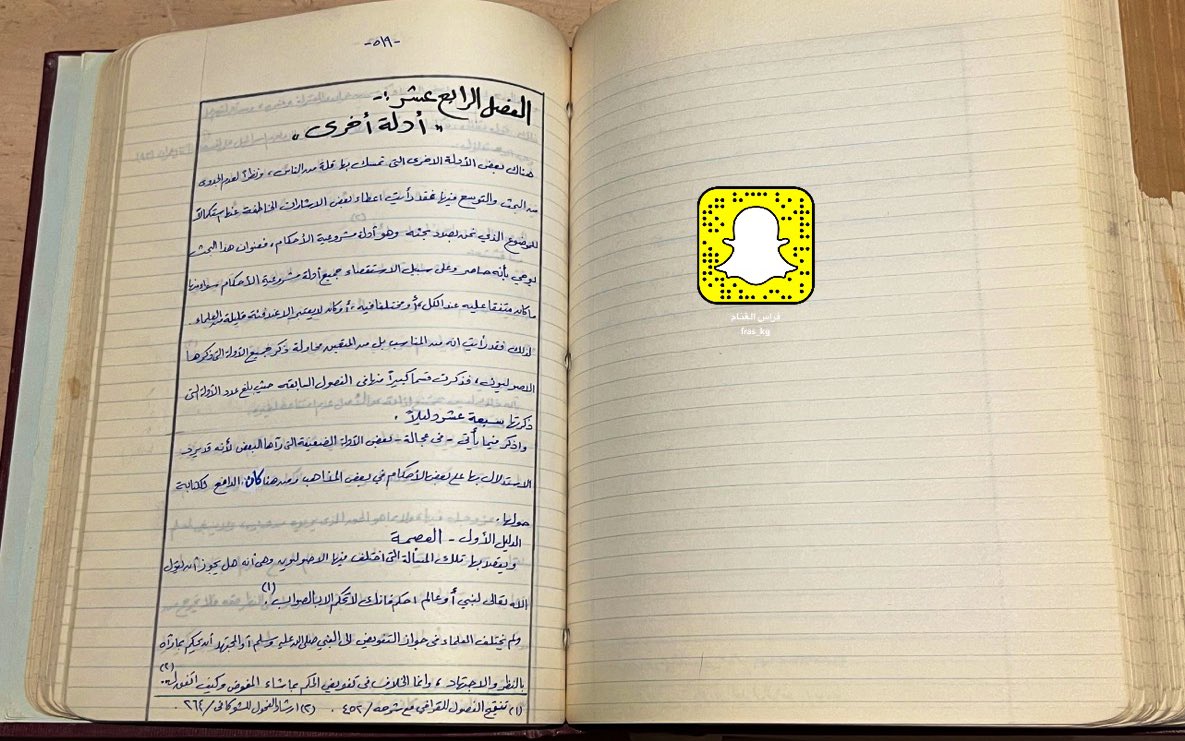 -٥١٩-
الفصل الرابع عشر :-
" أدلة أخرى "
هناك بعض الأدلة الاخرى التى تمسك بها قلة من الناس ، ونظراً لعدم الجدوى
من البحث والتوسع فيها فقد رأيت اعطاء بعض الاشارات الخاطفة عنها استكمالاً
للموضوع الذي نحن بصدد بحثه وهو أدلة مشروعية الأحكام ، فعنوان هذا البحث
يوحي بأنه حاصر وعلى سبيل الاستقصاء جميع أدلة مشروعية الأحكام سواء منها
ما كان متفقا عليه عند الكل ، أو مختلفا فيه ، أو كان لا يعتبر الا عند فئة قليلة من العلماء
لذلك فقد رأيت انه من المناسب بل من المتعين محاولة ذكر جميع الأدلة التى ذكرها
الاصوليون ، فذكرت قسما كبيراً منها فى الفصول السابقه حيث بلغ عدد الأدلة التى
ذكرتها سبعة عشر دليلاً .
واذكر فيما يأتي - في عجالة - بعض الأدلة الضعيفة التى رآها البعض لأنه قد يرد
الاستدلال بها على بعض الأحكام في بعض المذاهب ومن هنا كان الدافع للكتابة
حولها .
الدليل الأول - العصمة
ويقصد بها تلك المسألة التى اختلف فيها الاصوليون وهى أنه هل يجوز أن يقول
الله تعالى لنبي أو عالم احكم فانك لا تحكم الا بالصواب (١) .
ولم يختلف العلماء فى جواز التفويض الى النبي صلى الله عليه وسلم أو المجتهد أن يحكم بما رآه
بالنظر والاجتهاد ، وانما الخلاف فى تفويض الحكم بما شاء المفوض وكيف اتفق له (٢) .
(١) تنقيح الفصول للقرافي مع شرحه / ٤٥٢ . (٢) ارشاد الفحول للشوكانى / ٢٦٤ .
فراس الغنام
fras_kg